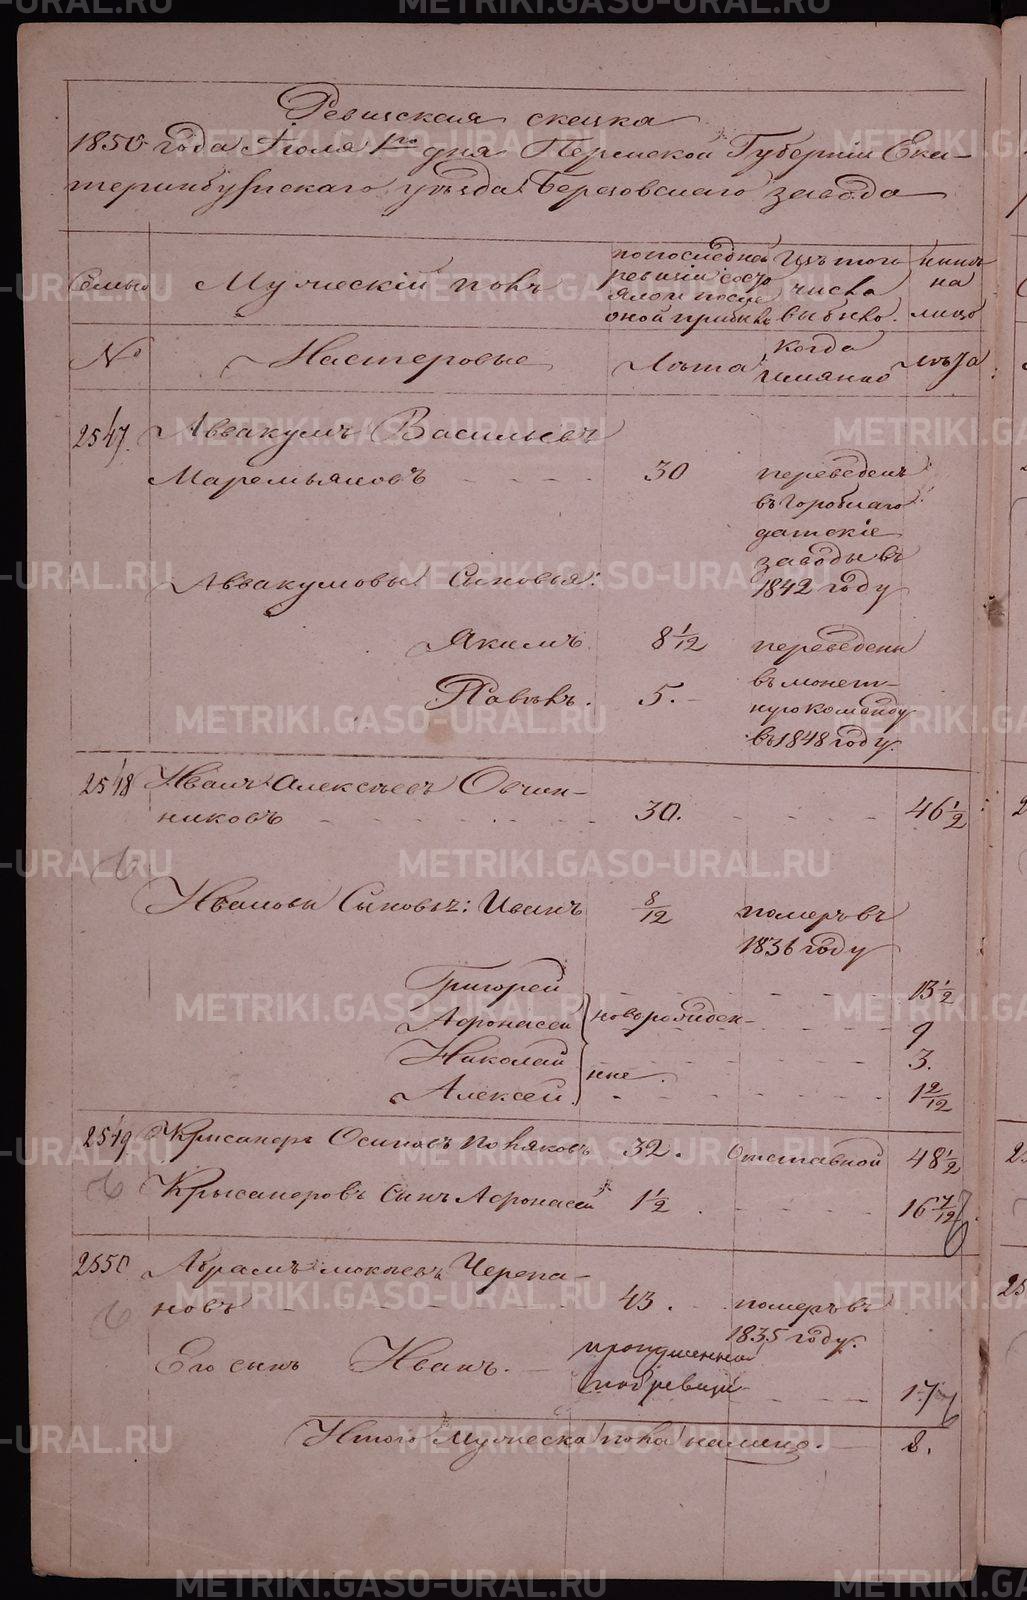 Ревизская сказка
1850 года Іюля 1го дня Пермской Губерніи Ека-
теринбургскаго уѣзда Березовскаго завода
Семьи
Мужескій полъ
по последней
ревизіи сост
ояло и после
оной прибыло
Изъ того
числа
выбыло.
нынѣ
на
лицо
№
Мастеровые
Лѣта
когда
имянно
Лѣта
2547. Аввакумъ Васильевъ
Маремьяновъ 30 переведенъ
въ Гороблаго
датскіе
заводы въ
1842 году
Аввакумовы Сыновья:
Якимъ 8 1/12 переведены
въ монет-
Павелъ. 5. ную команду
въ 1848 году.
2548 Иванъ Алексѣевъ Овчин-
никовъ 30. 46 1/2
Ивановы Сыновья: Иванъ 8/12 померъ въ
1836 году
Григорей 13 1/2
Афонасей новорожден- 9
Николай 3.
ные.
Алексей. 1 2/12
2549 Крисанѳъ Осиповъ Поляковъ 32. Отставной 48 1/2
Крысанѳовъ сынъ Афонасей 1 1/2 16 7/12
2550 Абрамъ Мокѣевъ Черепа-
новъ 43. померъ въ
1835 году.
Его сынъ Иванъ. пропущенной
по 8 ревизіи 17
Итого Мужеска пола на лицо. 8.
METRIKI.GASO-URAL.RU